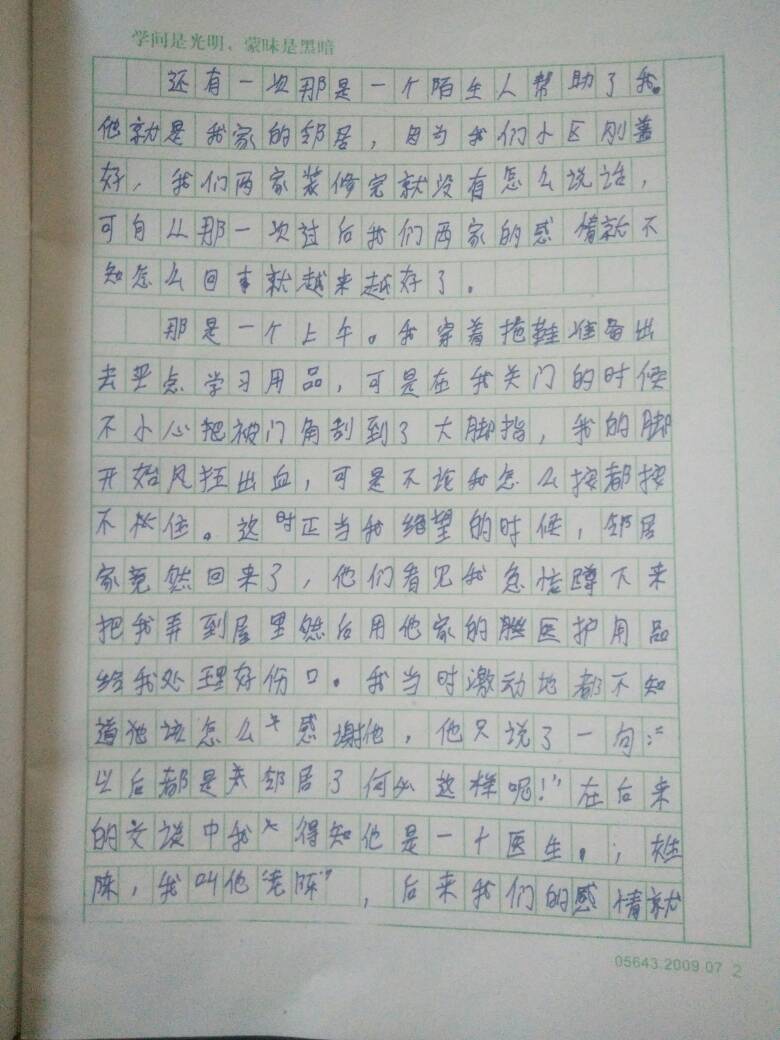 学问是光明，蒙昧是黑暗
还有一次那是一个陌生人帮助了我。
他就是我家的邻居，因为我们小区刚盖
好，我们两家装修完就没有怎么说话，
可自从那一次过后我们两家的感情就不
知怎么回事就越来越好了。
那是一个上午。我穿着拖鞋准备出
去买点学习用品，可是在我关门的时候
不小心把被门角刮到了大脚指，我的脚
开始风狂出血，可是不论我怎么按都按
不住。这时正当我绝望的时候，邻居
家竟然回来了，他们看见我急忙蹲下来
把我弄到屋里然后用他家的医护用品
给我处理好伤口。我当时激动地都不知
道他该怎么感谢他，他只说了一句:“
以后都是邻居了何必这样呢!”在后来
的交谈中我得知他是一个医生。，姓
陈，我叫他“老陈”，后来我们的感情就
05643.2009.07 2